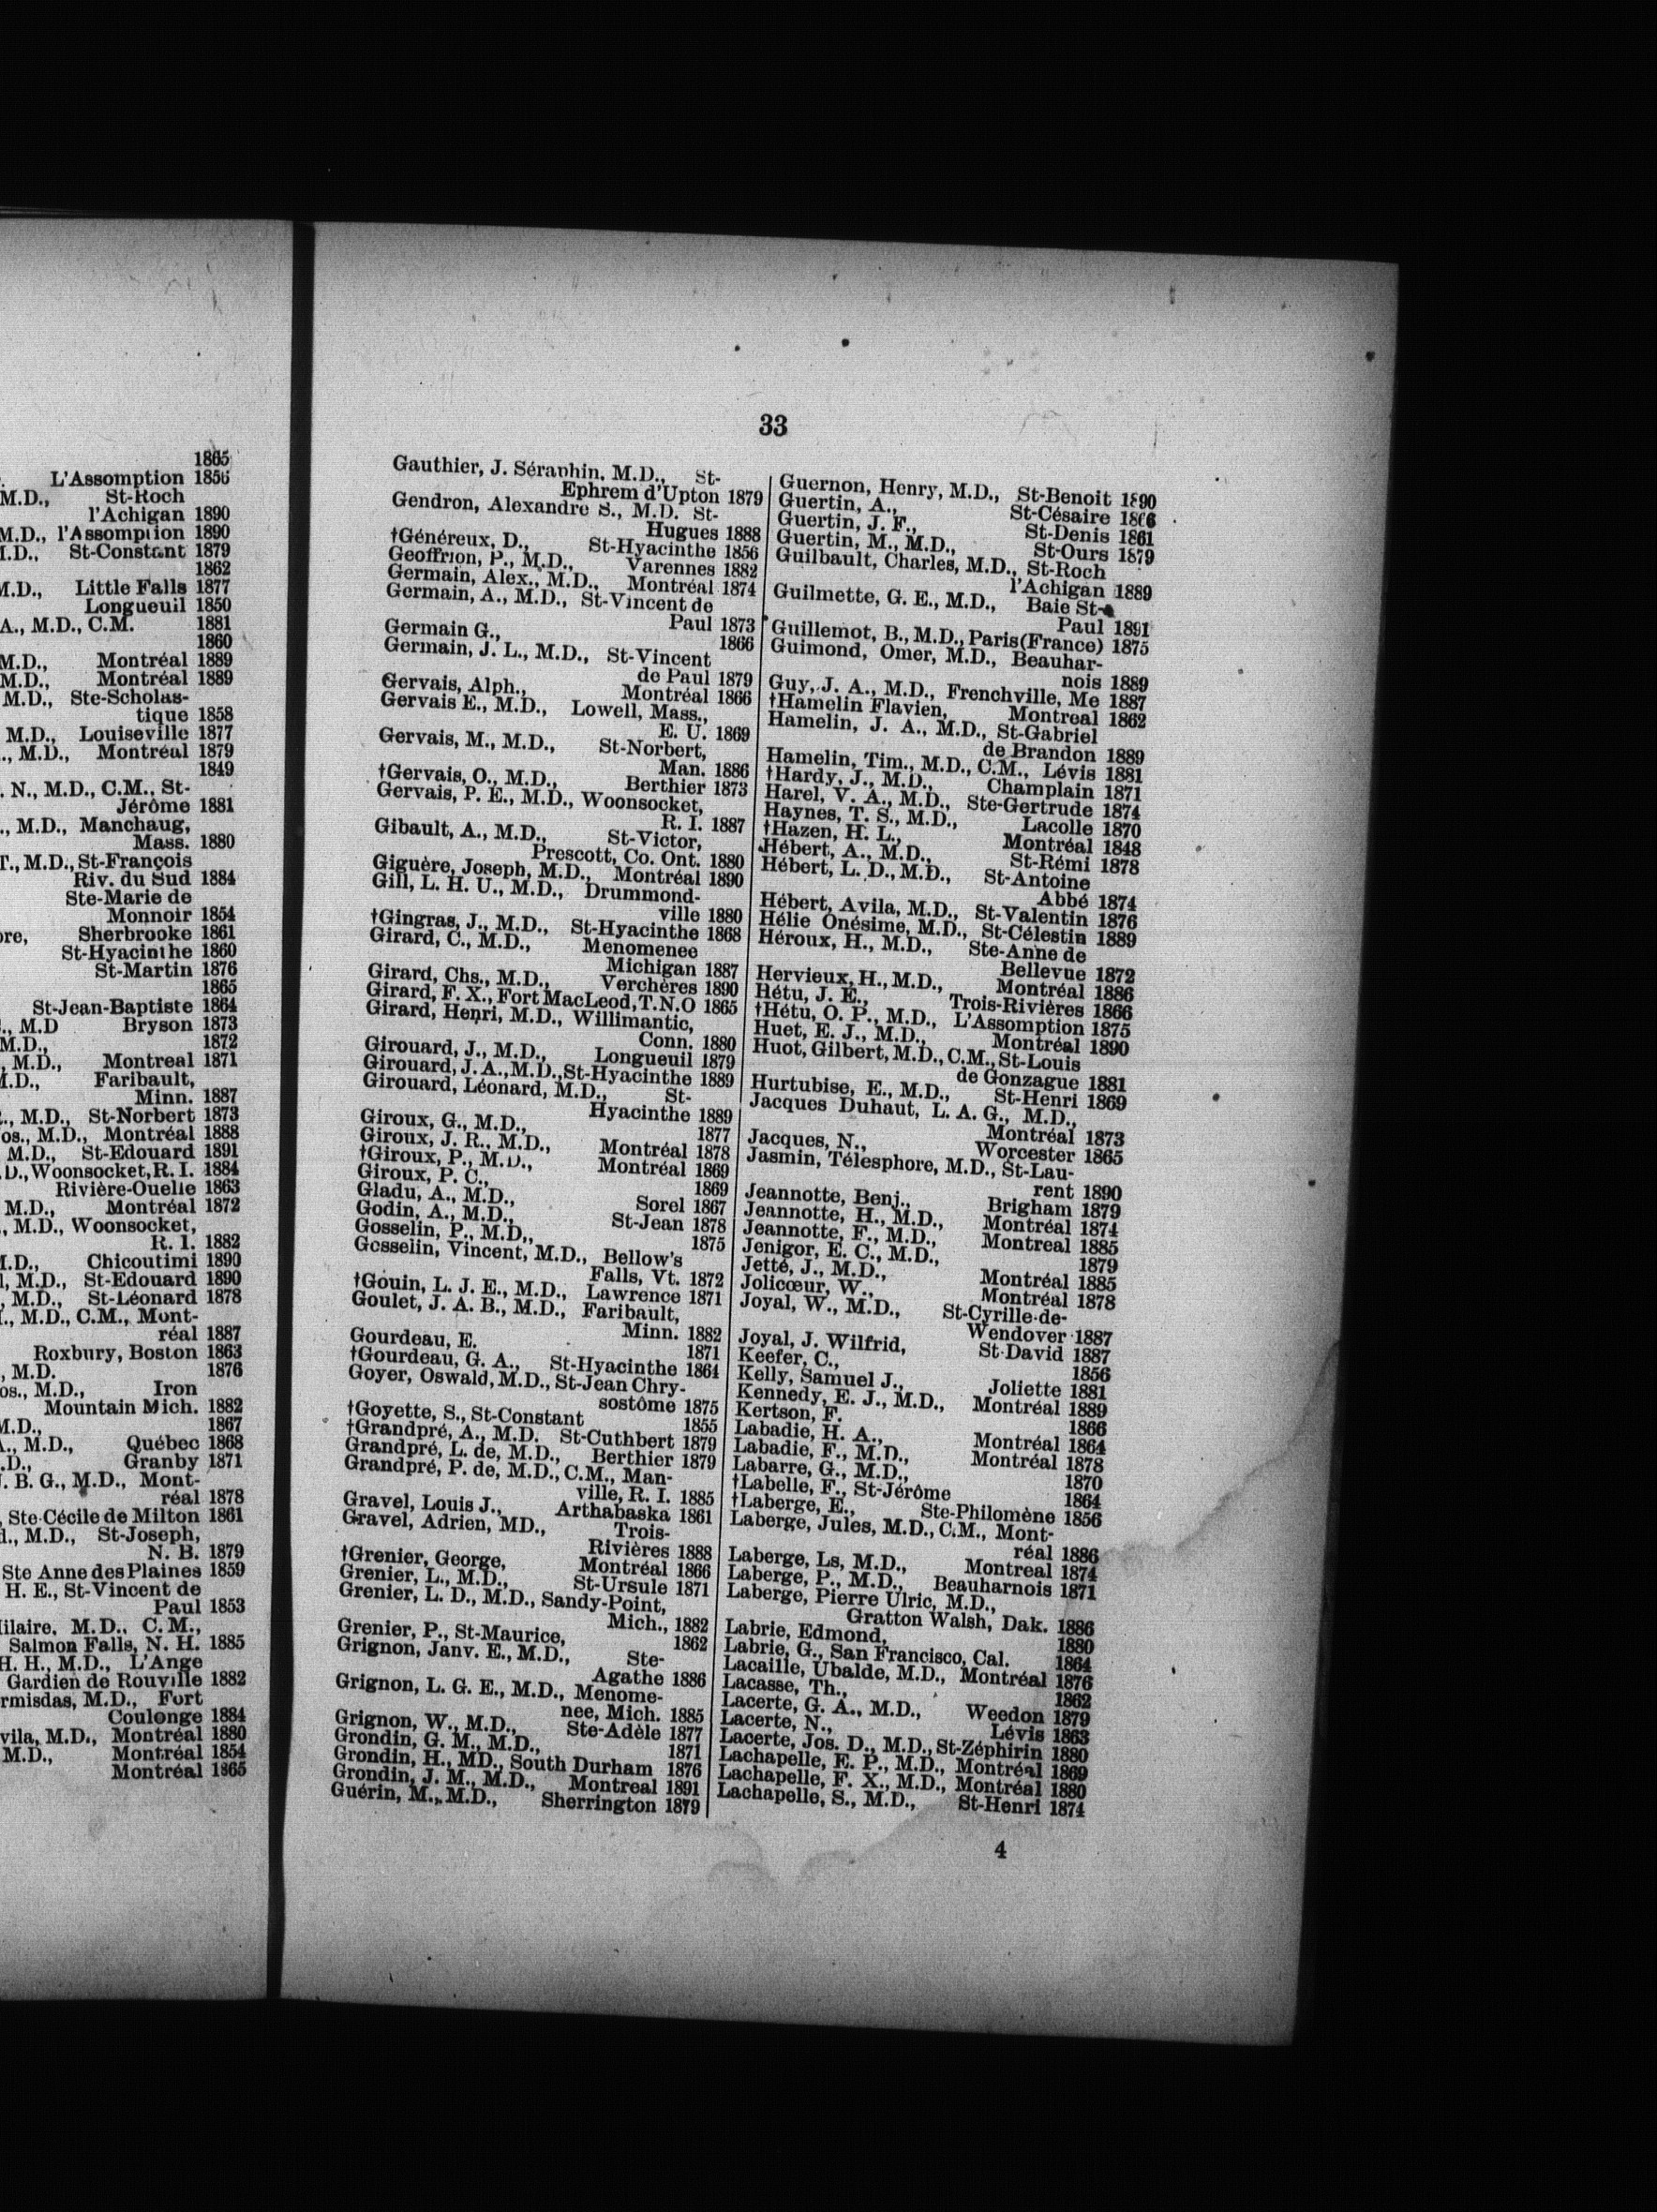 1865
L'Assomption 1856
M.D., St-Roch
l'Achigan 1890
M.D., l'Assomption 1890
M.D., St-Constant 1879
1862
M.D., Little Falls 1877
Longueuil 1850
A., M.D., C.M. 1881
1860
M.D., Montréal 1889
M.D., Montréal 1889
M.D., Ste-Scholas-
tique 1858
M.D., Louiseville 1877
., M.D., Montréal 1879
1849
. N., M.D., C.M., St-
Jérôme 1881
., M.D., Manchaug,
Mass. 1880
T., M.D., St-François
Riv. du Sud 1884
Ste-Marie de
Monnoir 1854
ore, Sherbrooke 1861
St-Hyacinthe 1860
St-Martin 1876
1865
St-Jean-Baptiste 1864
., M.D Bryson 1873
M.D., 1872
, M.D., Montreal 1871
M.D., Faribault,
Minn. 1887
., M.D., St-Norbert 1873
os., M.D., Montréal 1888
M.D., St-Edouard 1891
.D., Woonsocket, R. I. 1884
Rivière-Ouelle 1863
M.D., Montréal 1872
., M.D., Woonsocket,
R. I. 1882
M.D., Chicoutimi 1890
l, M.D., St-Edouard 1890
, M.D., St-Léonard 1878
., M.D., C.M., Mont-
réal 1887
Roxbury, Boston 1863
, M.D. 1876
os., M.D., Iron
Mountain Mich. 1882
M.D., 1867
A., M.D., Québec 1868
.D., Granby 1871
. B. G., M.D., Mont-
réal 1878
, Ste-Cécile de Milton 1861
d., M.D., St-Joseph,
N. B. 1879
Ste Anne des Plaines 1859
H. E., St-Vincent de
Paul 1853
ilaire, M.D., C.M.,
Salmon Falls, N. H. 1885
H. H., M.D., L'Ange
Gardien de Rouville 1882
rmisdas, M.D., Fort
Coulonge 1884
vila, M.D., Montréal 1880
M.D., Montréal 1854
Montréal 1865
33
Gauthier, J. Séraphin, M.D., St-
Ephrem d'Upton 1879
Gendron, Alexandre S., M.D. St-
Hugues 1888
†Généreux, D., St-Hyacinthe 1856
Geoffrion, P., M.D., Varennes 1882
Germain, Alex., M.D., Montréal 1874
Germain, A., M.D., St-Vincent de
Paul 1873
Germain G., 1866
Germain, J. L., M.D., St-Vincent
de Paul 1879
Gervais, Alph., Montréal 1866
Gervais E., M.D., Lowell, Mass.,
E. U. 1869
Gervais, M., M.D., St-Norbert,
Man. 1886
†Gervais, O., M.D., Berthier 1873
Gervais, P. E., M.D., Woonsocket,
R. I. 1887
Gibault, A., M.D., St-Victor,
Prescott, Co. Ont. 1880
Giguère, Joseph, M.D., Montréal 1890
Gill, L. H. U., M.D., Drummond-
ville 1880
†Gingras, J., M.D., St-Hyacinthe 1868
Girard, C., M.D., Menomenee
Michigan 1887
Girard, Chs., M.D., Verchères 1890
Girard, F. X., Fort MacLeod, T.N.O 1865
Girard, Henri, M.D., Willimantic,
Conn. 1880
Girouard, J., M.D., Longueuil 1879
Girouard, J. A., M.D., St-Hyacinthe 1889
Girouard, Léonard, M.D., St-
Hyacinthe 1889
Giroux, G., M.D., 1877
Giroux, J. R., M.D., Montréal 1878
†Giroux, P., M.D., Montréal 1869
Giroux, P. C., 1869
Gladu, A., M.D., Sorel 1867
Godin, A., M.D., St-Jean 1878
Gosselin, P., M.D., 1875
Gosselin, Vincent, M.D., Bellow's
Falls, Vt. 1872
†Gouin, L. J. E., M.D., Lawrence 1871
Goulet, J. A. B., M.D., Faribault,
Minn. 1882
Gourdeau, E. 1871
†Gourdeau, G. A., St-Hyacinthe 1864
Goyer, Oswald, M.D., St-Jean Chry-
sostôme 1875
†Goyette, S., St-Constant 1855
†Grandpré, A., M.D. St-Cuthbert 1879
Grandpré, L. de, M.D., Berthier 1879
Grandpré, P. de, M.D., C.M., Man-
ville, R. I. 1885
Gravel, Louis J., Arthabaska 1861
Gravel, Adrien, MD., Trois-
Rivières 1888
†Grenier, George, Montréal 1866
Grenier, L., M.D., St-Ursule 1871
Grenier, L. D., M.D., Sandy-Point,
Mich., 1882
Grenier, P., St-Maurice, 1862
Grignon, Janv. E., M.D., Ste-
Agathe 1886
Grignon, L. G. E., M.D., Menome-
nee, Mich. 1885
Grignon, W., M.D., Ste-Adèle 1877
Grondin, G. M., M.D., 1871
Grondin, H., MD., South Durham 1876
Grondin, J. M., M.D., Montreal 1891
Guérin, M., M.D., Sherrington 1879
Guernon, Henry, M.D., St-Benoit 1890
Guertin, A., St-Césaire 1866
Guertin, J. F., St-Denis 1861
Guertin, M., M.D., St-Ours 1879
Guilbault, Charles, M.D., St-Roch
l'Achigan 1889
Guilmette, G. E., M.D., Baie St-
Paul 1891
Guillemot, B., M.D., Paris(France) 1875
Guimond, Omer, M.D., Beauhar-
nois 1889
Guy, J. A., M.D., Frenchville, Me 1887
†Hamelin Flavien, Montreal 1862
Hamelin, J. A., M.D., St-Gabriel
de Brandon 1889
Hamelin, Tim., M.D., C.M., Lévis 1881
†Hardy, J., M.D., Champlain 1871
Harel, V. A., M.D., Ste-Gertrude 1874
Haynes, T. S., M.D., Lacolle 1870
†Hazen, H. L., Montréal 1848
Hébert, A., M.D., St-Rémi 1878
Hébert, L. D., M.D., St-Antoine
Abbé 1874
Hébert, Avila, M.D., St-Valentin 1876
Hélie Onésime, M.D., St-Célestin 1889
Héroux, H., M.D., Ste-Anne de
Bellevue 1872
Hervieux, H., M.D., Montréal 1886
Hétu, J. E., Trois-Rivières 1866
†Hétu, O. P., M.D., L'Assomption 1875
Huet, E. J., M.D., Montréal 1890
Huot, Gilbert, M.D., C.M., St-Louis
de Gonzague 1881
Hurtubise, E., M.D., St-Henri 1869
Jacques Duhaut, L. A. G., M.D.,
Montréal 1873
Jacques, N., Worcester 1865
Jasmin, Télesphore, M.D., St-Lau-
rent 1890
Jeannotte, Benj., Brigham 1879
Jeannotte, H., M.D., Montréal 1874
Jeannotte, F., M.D., Montreal 1885
Jenigor, E. C., M.D., 1879
Jetté, J., M.D., Montréal 1885
Jolicœur, W., Montréal 1878
Joyal, W., M.D., St-Cyrille-de-
Wendover 1887
Joyal, J. Wilfrid, St-David 1887
Keefer, C., 1856
Kelly, Samuel J., Joliette 1881
Kennedy, E. J., M.D., Montréal 1889
Kertson, F. 1866
Labadie, H. A., Montréal 1864
Labadie, F., M.D., Montréal 1878
Labarre, G., M.D., 1870
†Labelle, F., St-Jérôme 1864
†Laberge, E., Ste-Philomène 1856
Laberge, Jules, M.D., C.M., Mont-
réal 1886
Laberge, Ls, M.D., Montreal 1874
Laberge, P., M.D., Beauharnois 1871
Laberge, Pierre Ulric, M.D.,
Gratton Walsh, Dak. 1886
Labrie, Edmond, 1880
Labrie, G., San Francisco, Cal. 1864
Lacaille, Ubalde, M.D., Montréal 1876
Lacasse, Th., 1862
Lacerte, G. A., M.D., Weedon 1879
Lacerte, N., Lévis 1863
Lacerte, Jos. D., M.D., St-Zéphirin 1880
Lachapelle, E. P., M.D., Montréal 1869
Lachapelle, F. X., M.D., Montréal 1880
Lachapelle, S., M.D., St-Henri 1874
4